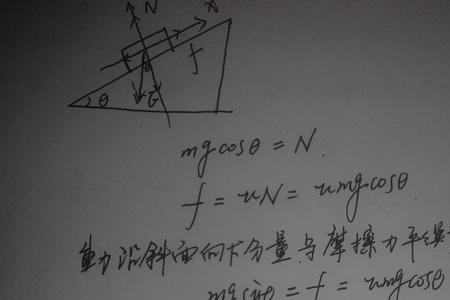 N x
f
θ
θ G
mgcosθ = N.
f = uN = umgcosθ
重力沿斜面向下分量与摩擦力平衡
mgsinθ = f = umgcosθ